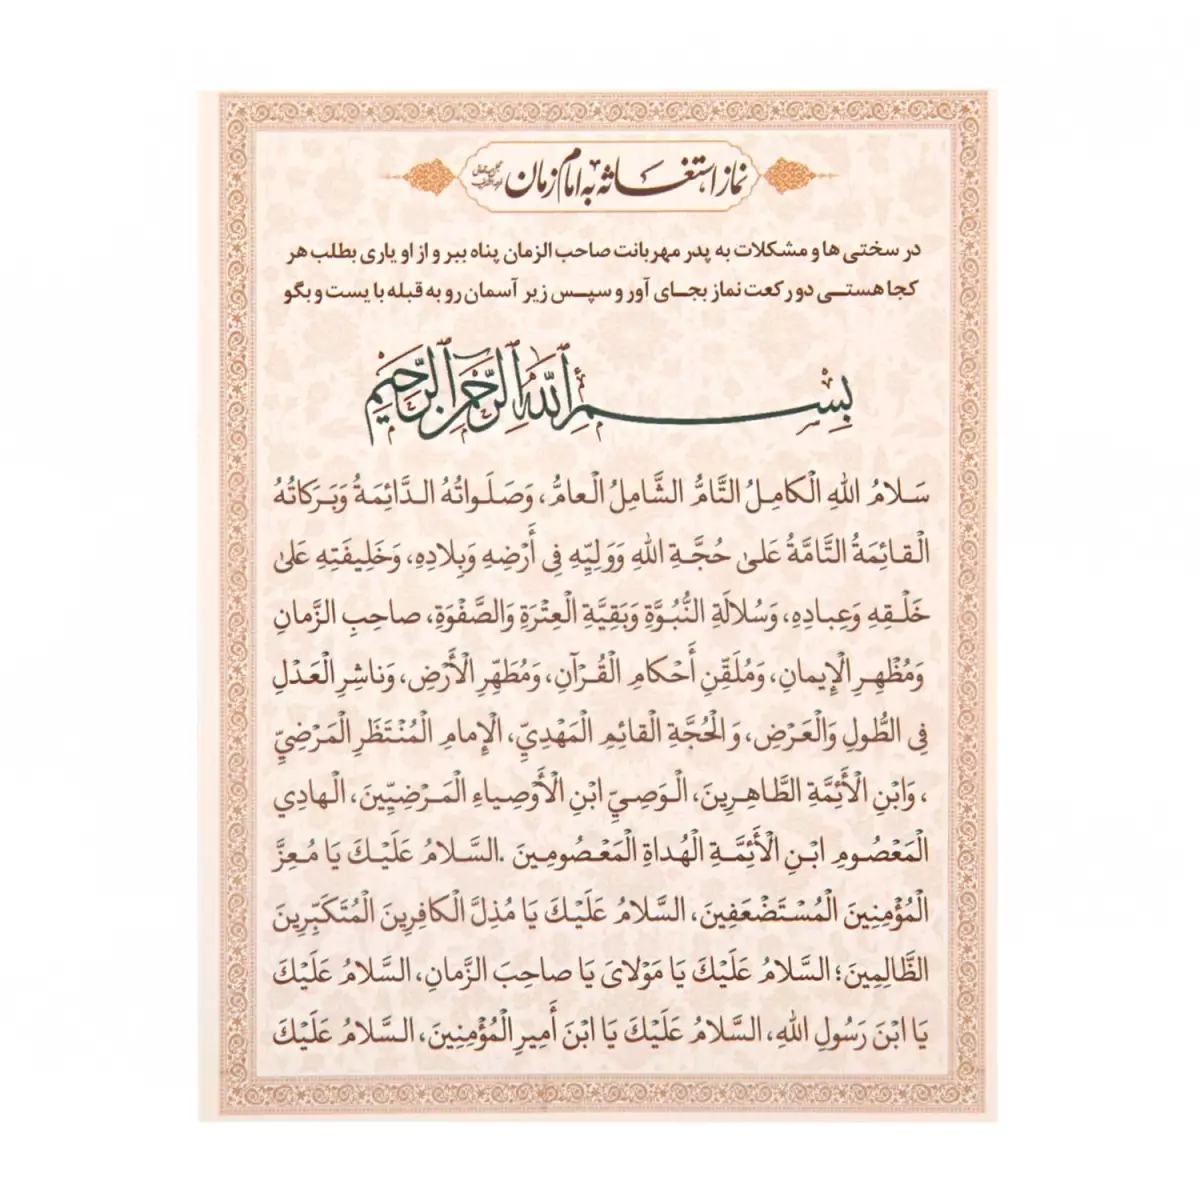 نماز استغاثه به امام زمان
در سختی ها و مشکلات به پدر مهربانت صاحب الزمان پناه ببر و از او یاری بطلب هر
کجا هستی دو رکعت نماز بجای آور و سپس زیر آسمان رو به قبله با یست و بگو
بِسْمِ ٱللَّهِ ٱلرَّحْمٰنِ ٱلرَّحِيمِ
سَلامُ اللهِ الْكامِلُ التَّامُّ الشَّامِلُ الْعامُّ، وَصَلَواتُهُ الدَّائِمَةُ وَبَرَكاتُهُ
الْقائِمَةُ التَّامَّةُ عَلىٰ حُجَّةِ اللهِ وَوَلِيِّهِ فِي أَرْضِهِ وَبِلادِهِ، وَخَلِيفَتِهِ عَلىٰ
خَلْقِهِ وَعِبادِهِ، وَسُلالَةِ النُّبُوَّةِ وَبَقِيَّةِ الْعِتْرَةِ وَالصَّفْوَةِ، صاحِبِ الزَّمانِ
وَمُظْهِرِ الْإِيمانِ، وَمُلَقِّنِ أَحْكامِ الْقُرْآنِ، وَمُطَهِّرِ الْأَرْضِ، وَناشِرِ الْعَدْلِ
فِي الطُّولِ وَالْعَرْضِ، وَ الْحُجَّةِ الْقائِمِ الْمَهْدِيِّ، الْإِمامِ الْمُنْتَظَرِ الْمَرْضِيِّ
، وَابْنِ الْأَئِمَّةِ الطَّاهِرِينَ، الْوَصِيِّ ابْنِ الْأَوْصِياءِ الْمَرْضِيِّينَ، الْهادِي
الْمَعْصُومِ ابْنِ الْأَئِمَّةِ الْهُداةِ الْمَعْصُومِينَ .السَّلامُ عَلَيْكَ يَا مُعِزَّ
الْمُؤْمِنِينَ الْمُسْتَضْعَفِينَ، السَّلامُ عَلَيْكَ يَا مُذِلَّ الْكافِرِينَ الْمُتَكَبِّرِينَ
الظَّالِمِينَ؛ السَّلامُ عَلَيْكَ يَا مَوْلاىَ يَا صاحِبَ الزَّمانِ، السَّلامُ عَلَيْكَ
يَا ابْنَ رَسُولِ اللهِ، السَّلامُ عَلَيْكَ يَا ابْنَ أَمِيرِ الْمُؤْمِنِينَ، السَّلامُ عَلَيْكَ